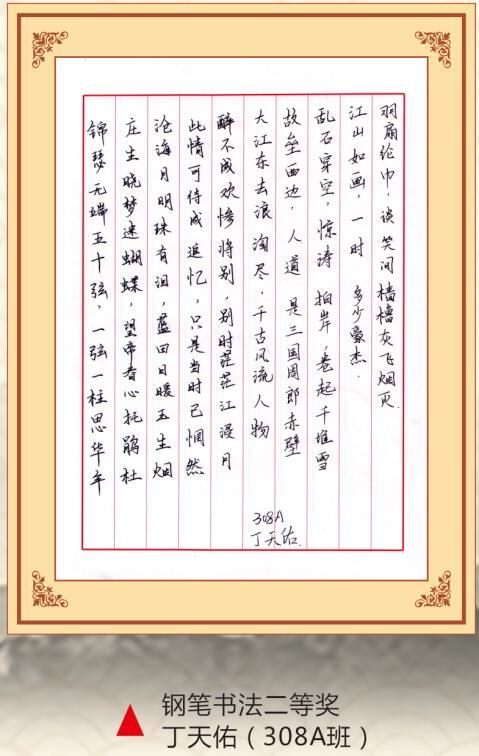 锦瑟无端五十弦，一弦一柱思华年
庄生晓梦迷蝴蝶，望帝春心托鹃杜
沧海月明珠有泪，蓝田日暖玉生烟
此情可待成追忆，只是当时已惘然
醉不成欢惨将别，别时茫茫江浸月
大江东去浪淘尽，千古风流人物
故垒西边，人道是三国周郎赤壁
乱石穿空，惊涛拍岸，卷起千堆雪
江山如画，一时多少豪杰.
羽扇纶巾，谈笑间樯橹灰飞烟灭.
308A
丁天佑.
钢笔书法二等奖
丁天佑（308A班）